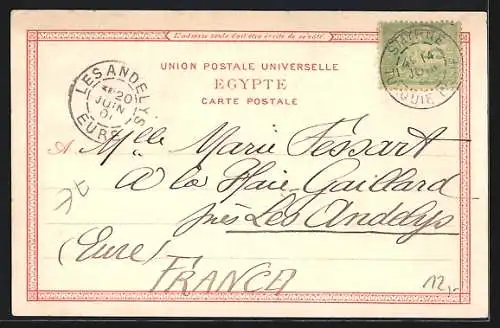 L'adresse seule doit être écrite de ce côté.
UNION POSTALE UNIVERSELLE
EGYPTE
CARTE POSTALE
SMYRNE
14
JUIN
TURQUIE
LES ANDELYS
20
JUIN
01
EURE
A Mlle Marie Fessart
à la Haie-Gaillard
près Les Andelys
(Eure)
FRANCE
12,-